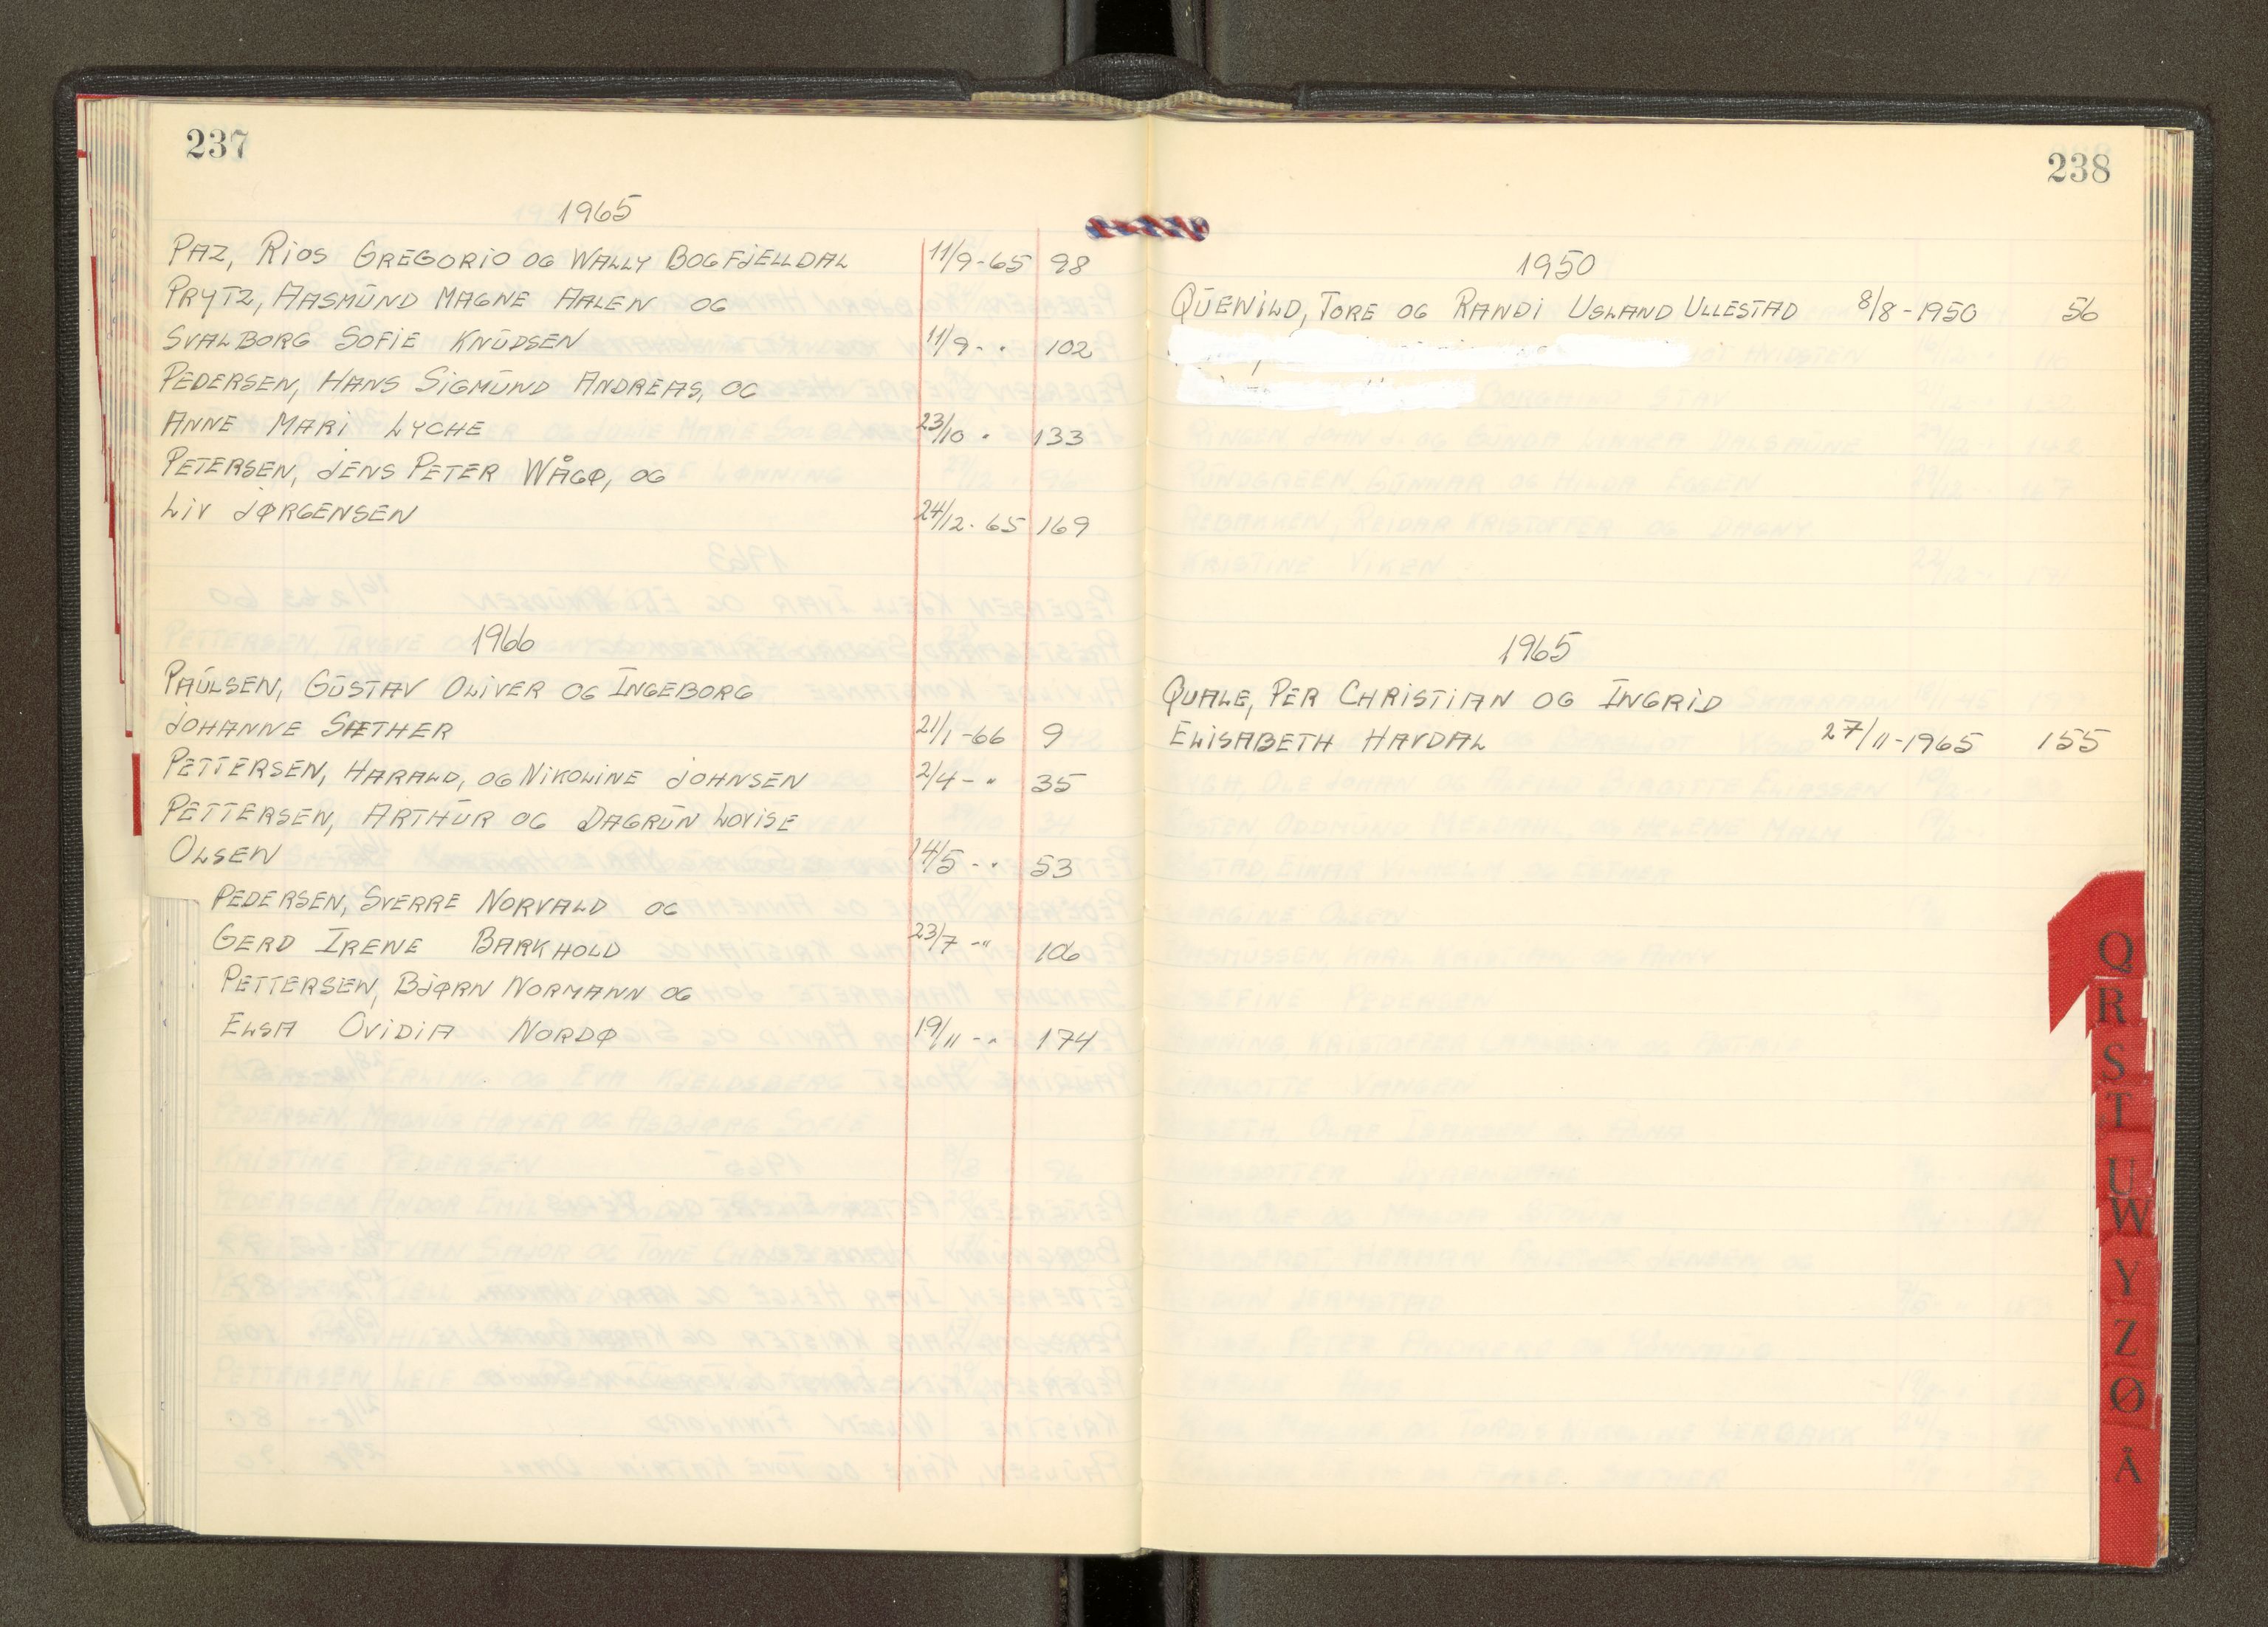 237
1965
PAZ, RIOS GREGORIO OG WALLY BOGFJELLDAL 11/9-65 98
PRYTZ, AASMUND MAGNE AALEN OG
SVALBORG SOFIE KNUDSEN 11/9 - " 102
PEDERSEN, HANS SIGMUND ANDREAS, OG
ANNE MARI LYCHE 23/10 " 133
PETERSEN, JENS PETER WÅGØ, OG
LIV JØRGENSEN 24/12-65 169
1966
PAULSEN, GUSTAV OLIVER OG INGEBORG
JOHANNE SÆTHER 21/1-66 9
PETTERSEN, HARALD, OG NIKOLINE JOHNSEN 2/4 - " 35
PETTERSEN, ARTHUR OG DAGRUN LOVISE
OLSEN 14/5 - " 53
PEDERSEN, SVERRE NORVALD OG
GERD IRENE BARKHOLD 23/7 - " 106
PETTERSEN, BJØRN NORMANN OG
ELSA OVIDIA NORDØ 19/11 - " 174
238
1950
QUENILD, TORE OG RANDI USLAND ULLESTAD 8/8-1950 56
1965
QUALE, PER CHRISTIAN OG INGRID
ELISABETH HAVDAL 27/11-1965 155
Q
R
S
T
U
W
Y
Z
Ø
A